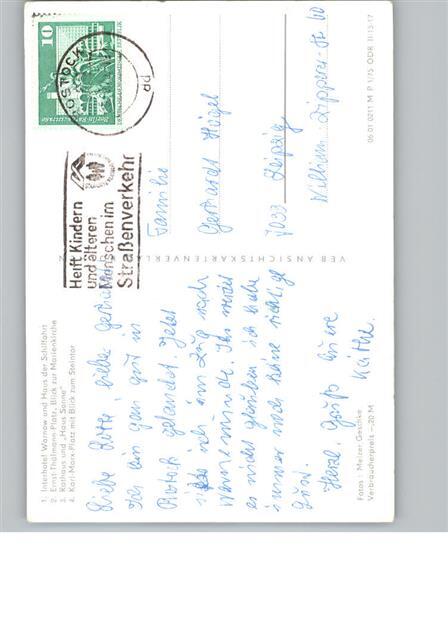 1. Interhotel Warnow und Haus der Schiffahrt
2. Ernst-Thälmann-Platz, Blick zur Marienkirche
3. Rathaus und „Haus Sonne"
4. Karl-Marx-Platz mit Blick zum Steintor
Liebe Lotte, lieber Gerhard!
Ich bin gan gut in
Rostock gelandet. Jetzt
sitze ich im Zug nach
Warnemünde. Ihr werdet
es nicht glauben ich habe
immer noch keine richtige
Herzl. Grüße Eure
Käthe.
Fotos: Melzer, Geschke
Verbraucherpreis –,20 M
VEB ANSICHTSKARTENVERL
Helft Kindern
und älteren
Menschen im
Straßenverkehr
ROSTOCK
10
Familie
Gerhardt Högel
7033 Leipzig
Wilhelm-Zipperer-St 60
06 01 0211 M P 1/75 DDR III-13-17